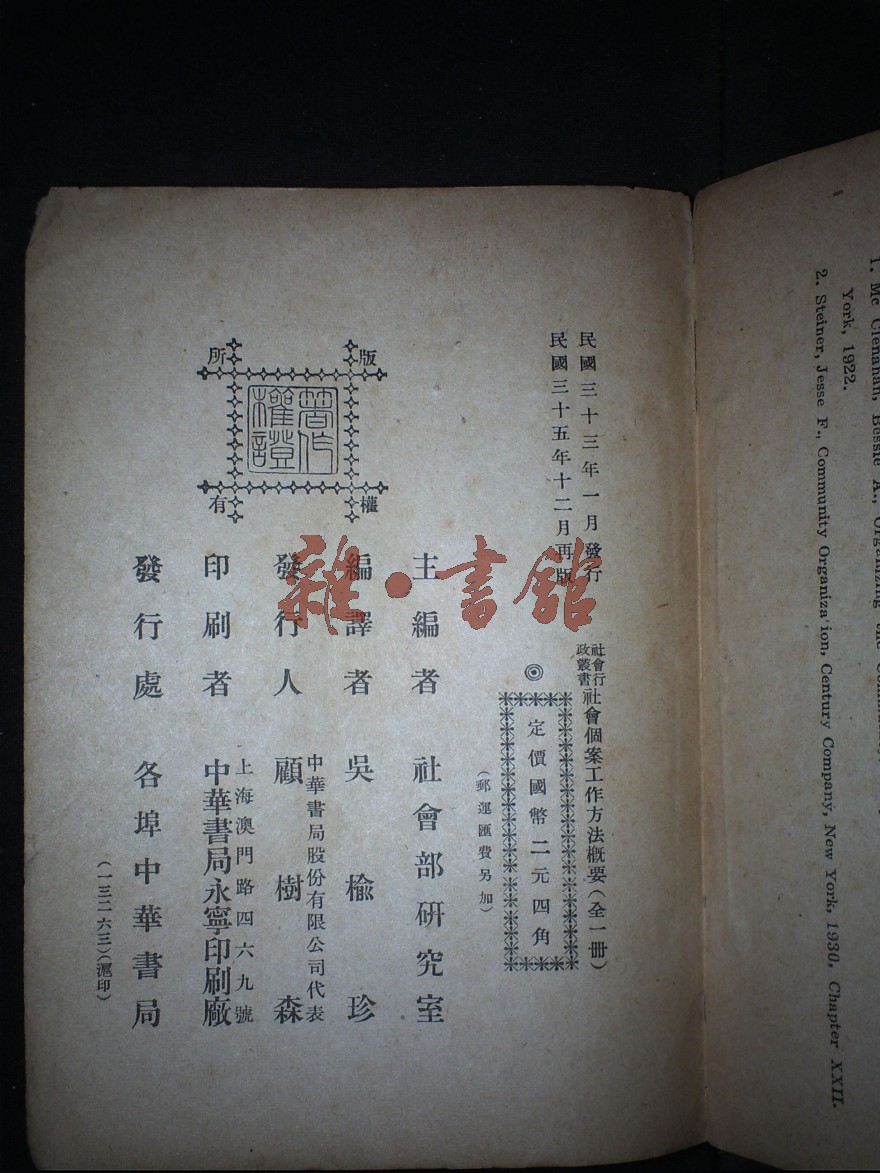 民國三十三年一月發行
民國三十五年十二月再版
社會行政叢書 社會個案工作方法概要（全一冊）
◎定價國幣二元四角
（郵運匯費另加）
主編者 社會部研究室
編譯者 吳楡珍
發行人 中華書局股份有限公司代表 顧樹森
印刷者 上海澳門路四六九號 中華書局永寧印刷廠
發行處 各埠中華書局
（一三二六三）（滬印）
版權所有
著作權證
雜·書館
1. Mc Clenahan, Bessie A., Organizing the Community,
York, 1922.
2. Steiner, Jesse F., Community Organiza'ion, Century Company, New York, 1930, Chapter XXII.